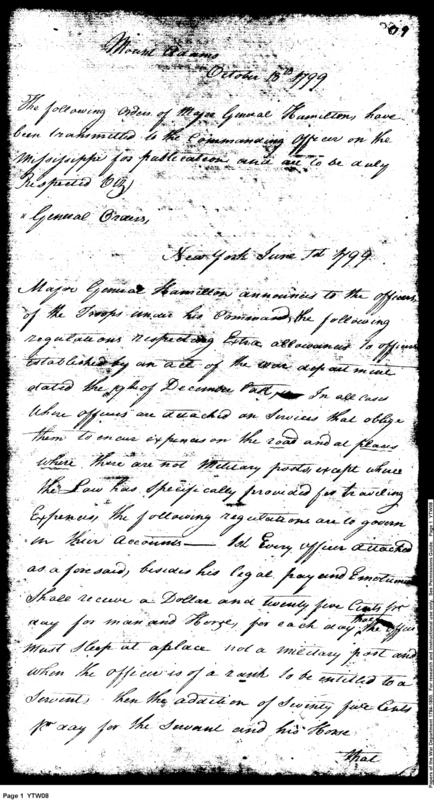 Mount Adams
October 13th 1799
The following orders of Major General Hamilton, have
been transmitted to the Commanding Officer on the
Mississippi for publication and are to be duly
Respected Viz,
General Orders,
New York June 1799
Major General Hamilton announces to the officers
of the Troops under his Command, the following
regulations respecting Extra allowances to officers
established by an act of the war department
dated the of December In all cases
where officers are attached on Services that oblige
them to encur expences on the road and at places
where there are not Military posts, except where
the Law has specifically provided for traveling
Expences, the following regulations are to govern
in their Accounts — 1st Every officer attached
as afore said, besides his legal pay and Emoluments
Shall receive a Dollar and twenty five Cents for
day for man and Horse, for each day that the officer
must Sleep at a place not a military post and
when the officer is of a rank to be entitled to a
Servent, then the addition of Seventy five Cents
Pr day for the Servant and his Horse
that
Page 1 YTW08
Papers of the War Department 1784-1800. For research and educational use only. See Permissions Guide. Page 1 YTW08